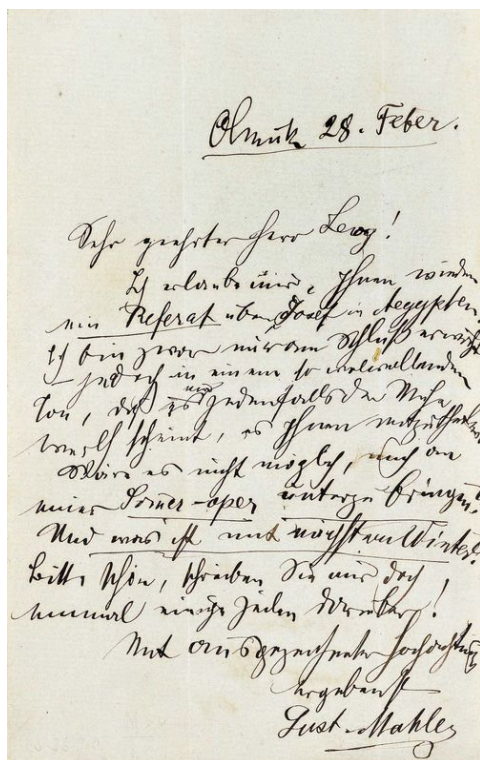 Olmütz 28. Feber.
Sehr geehrter Herr Levy!
Ich erlaube mir, Ihnen wieder
ein Referat über Josef in Aegypten.
Ich bin zwar nur am Schluß erwähnt
– jedoch in einem so wohlwollenden
Ton, daß es mir jedenfalls der Mühe
werth scheint, es Ihnen mitzutheilen
Wäre es nicht möglich, mich an
einer Somer-oper unterzubringen.
Und was ist mit nächstem Winter?
Bitte schön, schreiben Sie mir doch
einmal einige Zeilen darüber!
Mit ausgezeichneter Hochachtung
ergebenst
Gust. Mahler